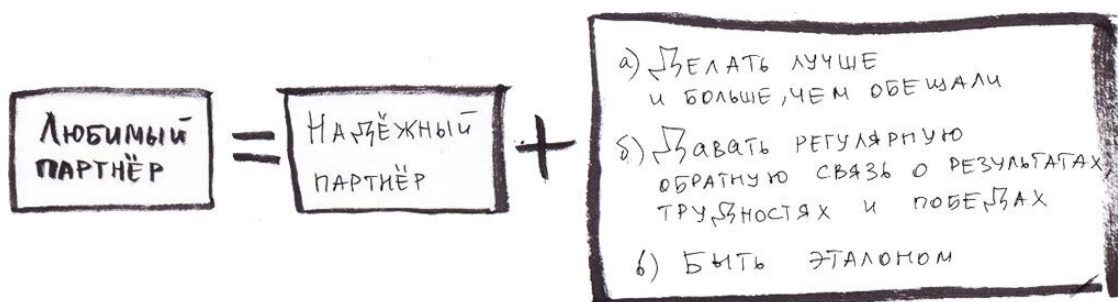 Любимый
партнёр
=
Надёжный
партнёр
+
а) Делать лучше
и больше, чем обещали
б) Давать регулярную
обратную связь о результатах,
трудностях и победах
в) Быть эталоном